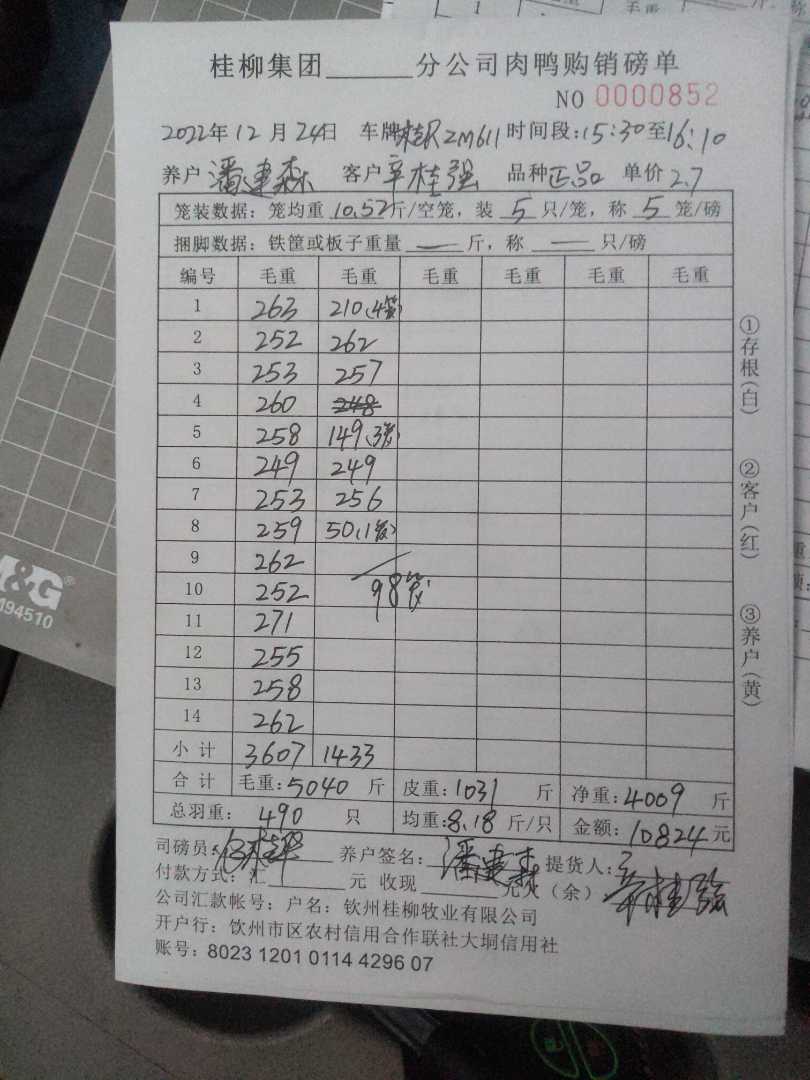 桂柳集团______分公司肉鸭购销磅单
NO 0000852
2022年12月24日 车牌 桂R ZM611 时间段:15:30至16:10
养户 潘建森 客户 辛桂强 品种 正品 单价 2.7
笼装数据：笼均重 10.52斤/空笼，装 5 只/笼，称 5 笼/磅
捆脚数据：铁筐或板子重量 — 斤，称 — 只/磅
编号 毛重 毛重 毛重 毛重 毛重 毛重
1 263 210(4笼)
2 252 262
3 253 257
4 260 248
5 258 149(3笼)
6 249 249
7 253 256
8 259 50(1笼)
9 262
10 252 98笼
11 271
12 255
13 258
14 262
小计 3607 1433
合计 毛重:5040 斤 皮重:1031 斤 净重:4009 斤
总羽重: 490 只 均重:8.18 斤/只 金额:10824元
司磅员: 养户签名: 潘建森 提货人: 辛桂强
付款方式: 汇______元 收现______元 欠（余）
公司汇款帐号：户名：钦州桂柳牧业有限公司
开户行：饮州市区农村信用合作联社大垌信用社
账号：8023 1201 0114 4296 07
①存根(白)
②客户(红)
③养户(黄)
M&G
94510